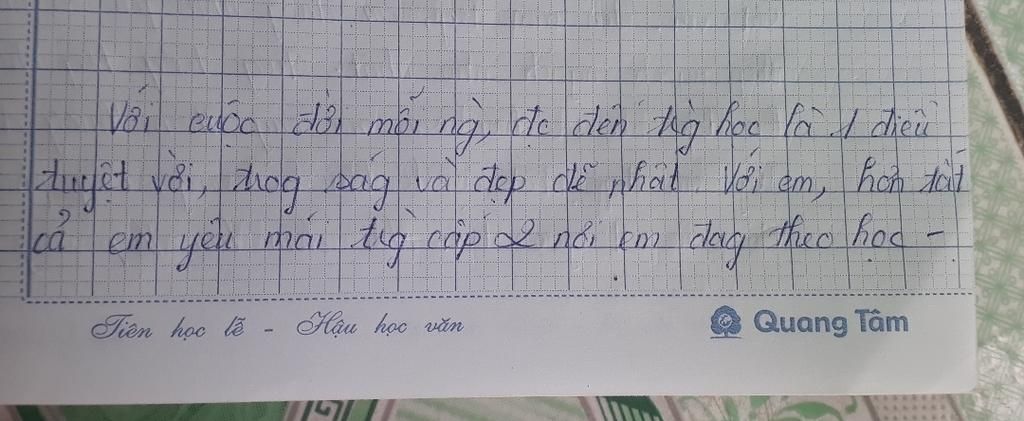 Với cuộc đời mỗi ng, đc đến tg học là 1 điều
tuyệt vời, trog ság và đẹp đẽ nhất. Với em, hơn tất
cả em yêu mái trg cấp 2 nơi em đag theo học -
Tiên học lễ - Hậu học văn
Quang Tâm